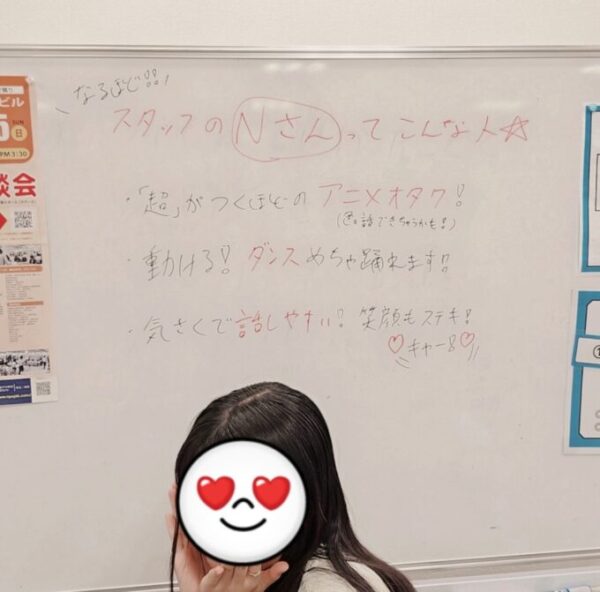 なるほど!!
スタッフのNさんって、こんな人☆
・「超」がつくほどの アニメオタク!
・動ける! ダンスめちゃ踊れます!
・気さくで話しやすい! 笑顔もステキ!
♡キャー♡
ビル
5
SUN
日
PM 3:30
談会